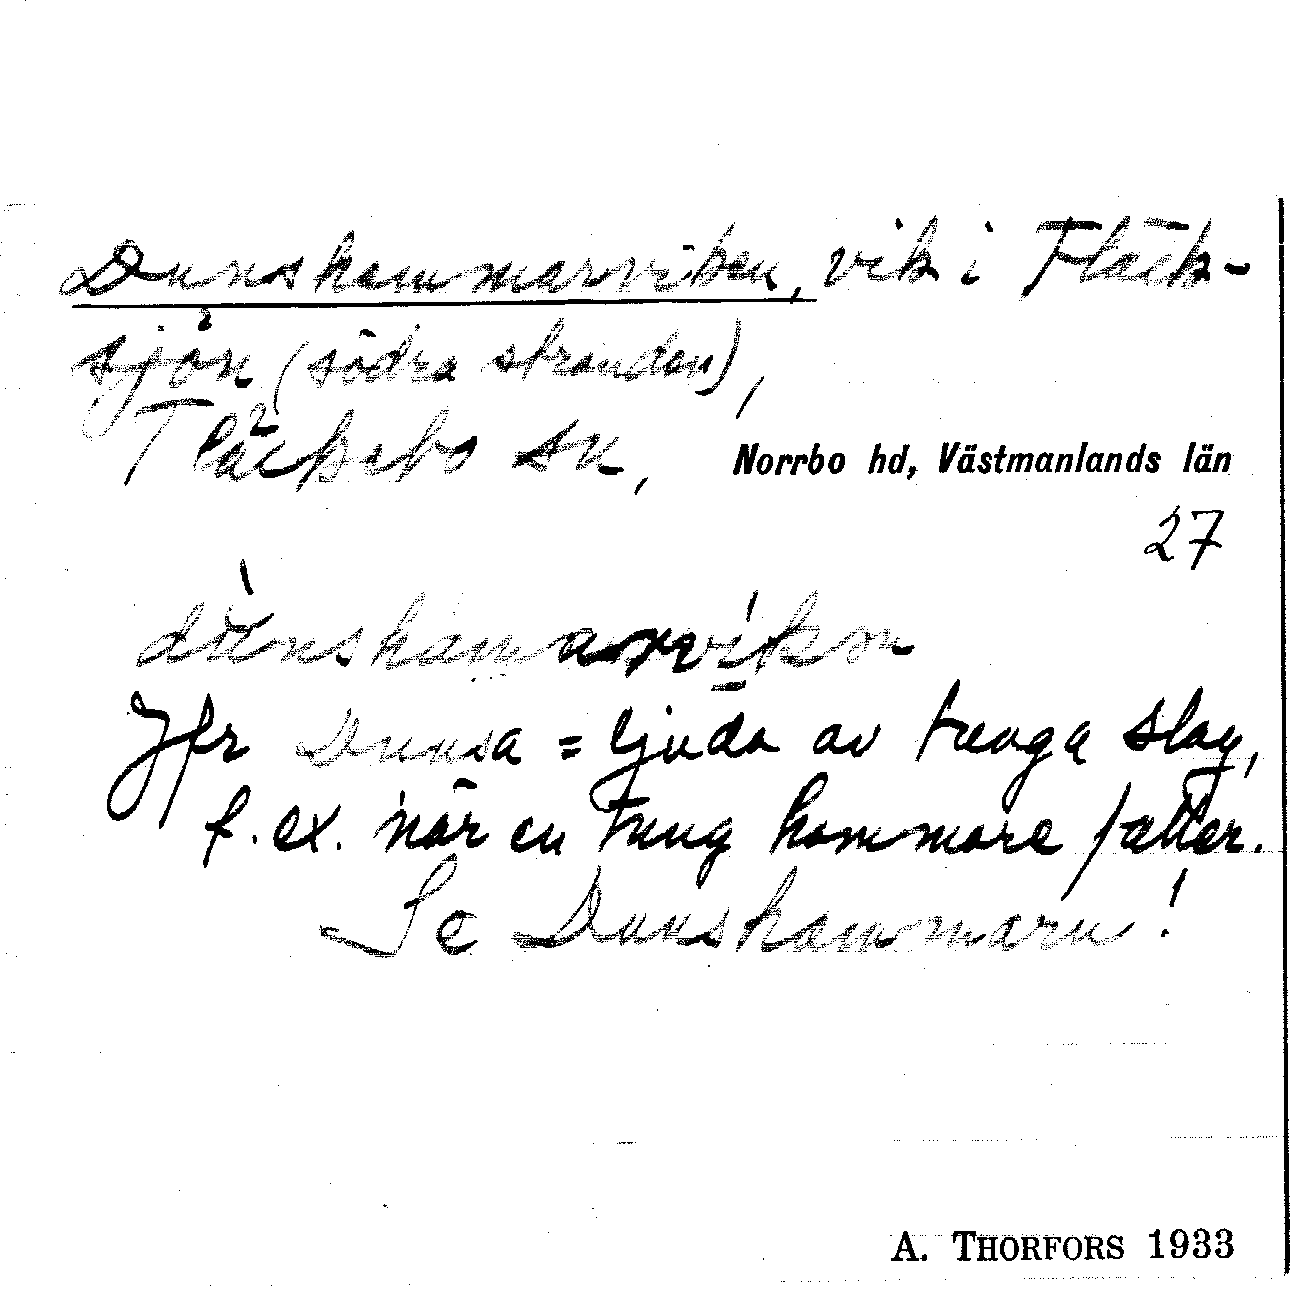 Dunshammarviken, vik i Fläck-
sjön (södra stranden),
Fläckebo sn, Norrbo hd, Västmanlands län
27
Jfr Dunsa = ljuda av tunga slag,
t. ex. när en tung hammare faller.
Se Dunshammarn!
A. THORFORS 1933